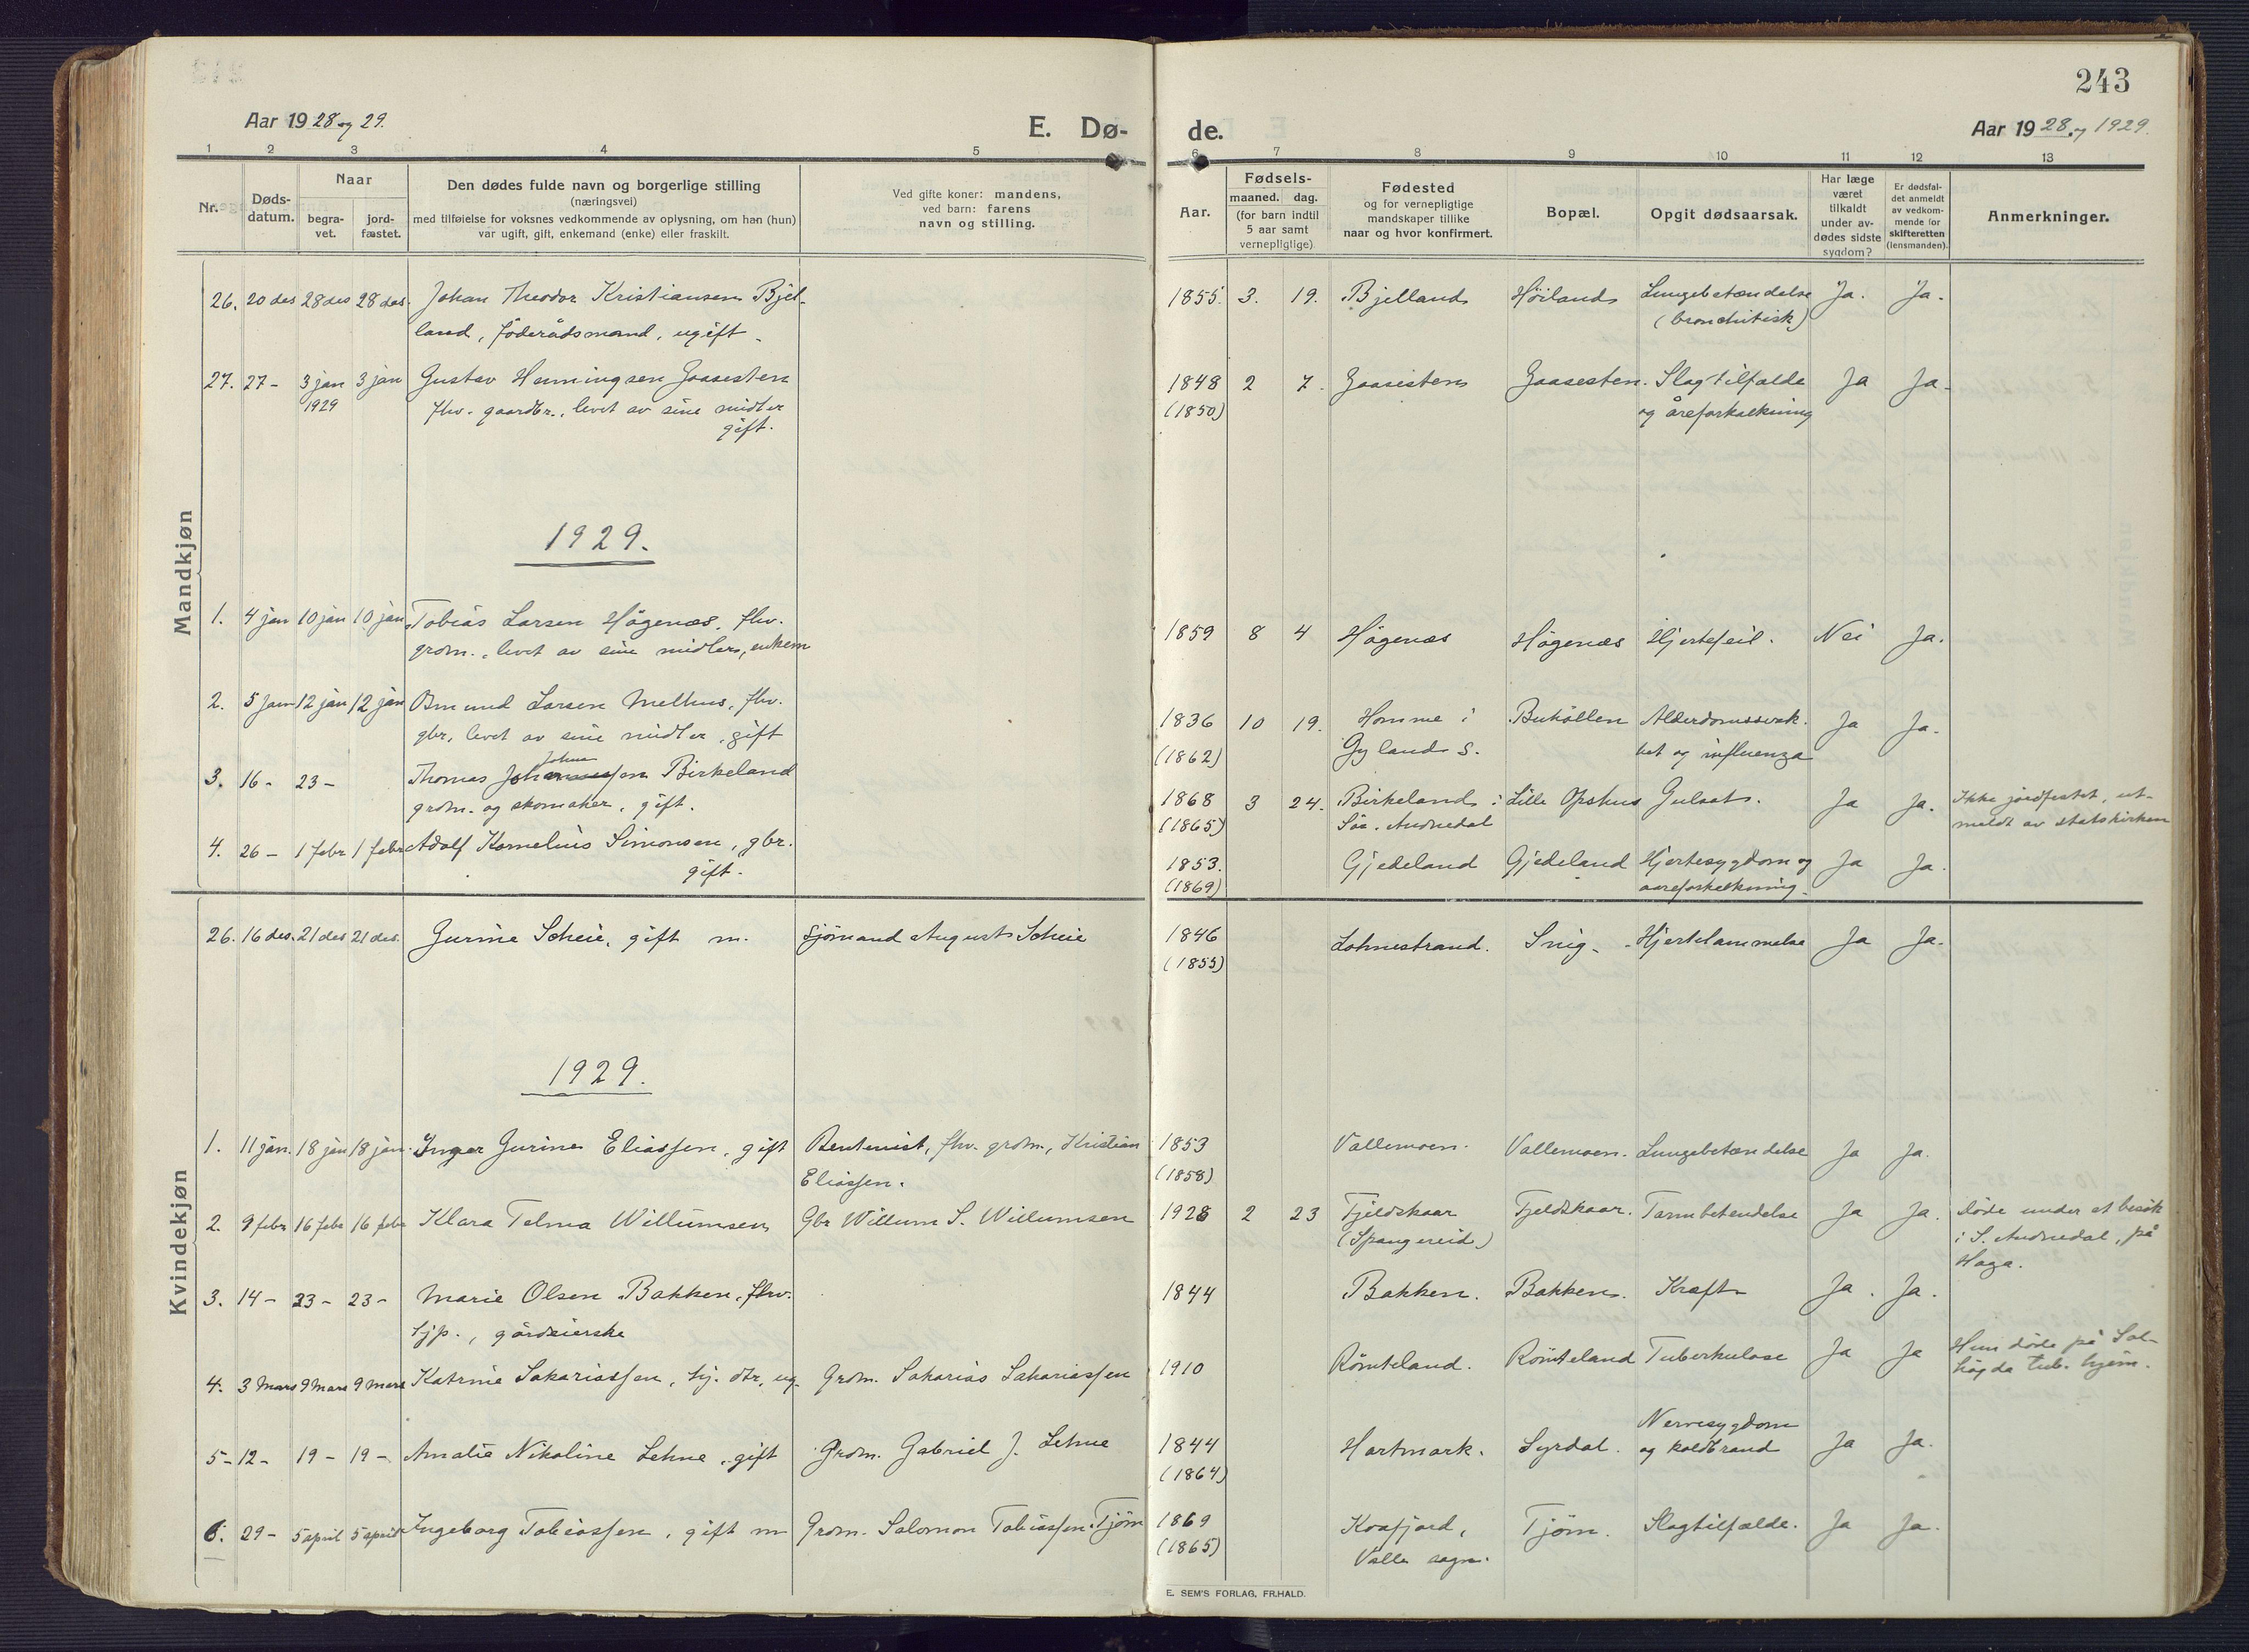 243
Aar 1928 og 29.
E. Dø-
de.
Aar 1928 og 1929.
1 2 3 4 5 6 7 8 9 10 11 12 13
Nr.
Døds-
datum.
Naar
begra-
vet.
jord-
fæstet.
Den dødes fulde navn og borgerlige stilling
(næringsvei)
med tilføielse for voksnes vedkommende av oplysning, om han (hun)
var ugift, gift, enkemand (enke) eller fraskilt.
Ved gifte koner: mandens,
ved barn: farens
navn og stilling.
Aar.
Fødsels-
maaned. dag.
(for barn indtil
5 aar samt
vernepligtige)
Fødested
og for vernepligtige
mandskaper tillike
naar og hvor konfirmert.
Bopæl.
Opgit dødsaarsak.
Har læge
været
tilkaldt
under av-
dødes sidste
sygdom?
Er dødsfal-
det anmeldt
av vedkom-
mende for
skifteretten
(lensmanden).
Anmerkninger.
Mandkjøn
26. 20 des 28 des 28 des. Johan Theodor Kristiansen Bjel- 1855. 3. 19. Bjelland Höiland Lungebetændelse Ja. Ja.
land, föderådsmand, ugift. (bronchitisk)
27. 27- 3 jan 3 jan Gustav Henningsen Gaasesten 1848 2 7. Gaasesten Gaasesten. Slagtilfælde Ja Ja.
1929 fhv. gaardbr., levet av sine midler (1850) og åreforkalkning
gift.
1929.
1. 4 jan 10 jan 10 jan Tobias Larsen Högenæs, fhv. 1859 8 4 Högenæs Högenæs Hjertefeil. Nei Ja.
grdm., levet av sine midler, enkem
2. 5 jan 12 jan 12 jan Omund Larsen Melhus, fhv. 1836 10 19. Homme i Buhöllen Alderdomssvak. Ja Ja.
gbr, levet av sine midler, gift (1862) Gyland s. het og influenza
3. 16- 23- Thomas Johnsen Birkeland 1868 3 24. Birkeland i Lille Opshus Gulsot. Ja Ja. Ikke jordfestet, ut-
grdm. og skomaker, gift. (1865) Sör. Audnedal meldt av statskirken
4. 26- 1 febr 1 febr Adolf Kornelius Simonsen, gbr. 1853. Gjedeland Gjedeland Hjertesygdom og Ja Ja.
gift. (1869) aareforkalkning.
Kvindekjøn
26. 16 des. 21 des 21 des. Gurine Scheie, gift m. Sjömand August Scheie 1846 Lohnestrand. Snig. Hjertelammelse Ja Ja.
(1855)
1929.
1. 11 jan. 18 jan 18 jan. Inger Gurine Eliassen, gift Rentenist, fhv. grdm., Kristian 1853 Vallemoen. Vallemoen. Lungebetændelse Ja Ja.
Eliassen. (1858)
2. 9 febr 16 febr 16 febr Klara Telma Willumsen Gbr Willum S. Willumsen 1928 2 23 Fjeldskaar Fjeldskaar. Tarmbetendelse Ja Ja. döde under et besök
(Spangereid) i S. Audnedal, på
Haga.
3. 14- 23- 23- Marie Olsen Bakken, fhv. 1844 Bakken. Bakken. Kræft Ja. Ja.
tjp., gårdeierske
4. 3 Mars 9 Mars 9 mars Katrine Sakariassen, hj. dtr, ug. Grdm. Sakarias Sakariassen 1910 Römteland. Römteland Tuberkulose Ja Ja Hun döde på Sol-
högda tub. hjem.
5- 12- 19- 19- Amalie Nikoline Lehne, gift Grdm. Gabriel J. Lehne 1844 Hartmark. Syrdal. Nervesygdom Ja Ja.
(1864) og koldbrand
6. 29- 5 april 5 april Ingeborg Tobiassen, gift m Grdm. Salomon Tobiassen. Tjöm 1869 Kvafjord, Tjöm. Slagtilfælde. Ja Ja.
(1865) Valle sogn.
E. SEM'S FORLAG, FR.HALD.